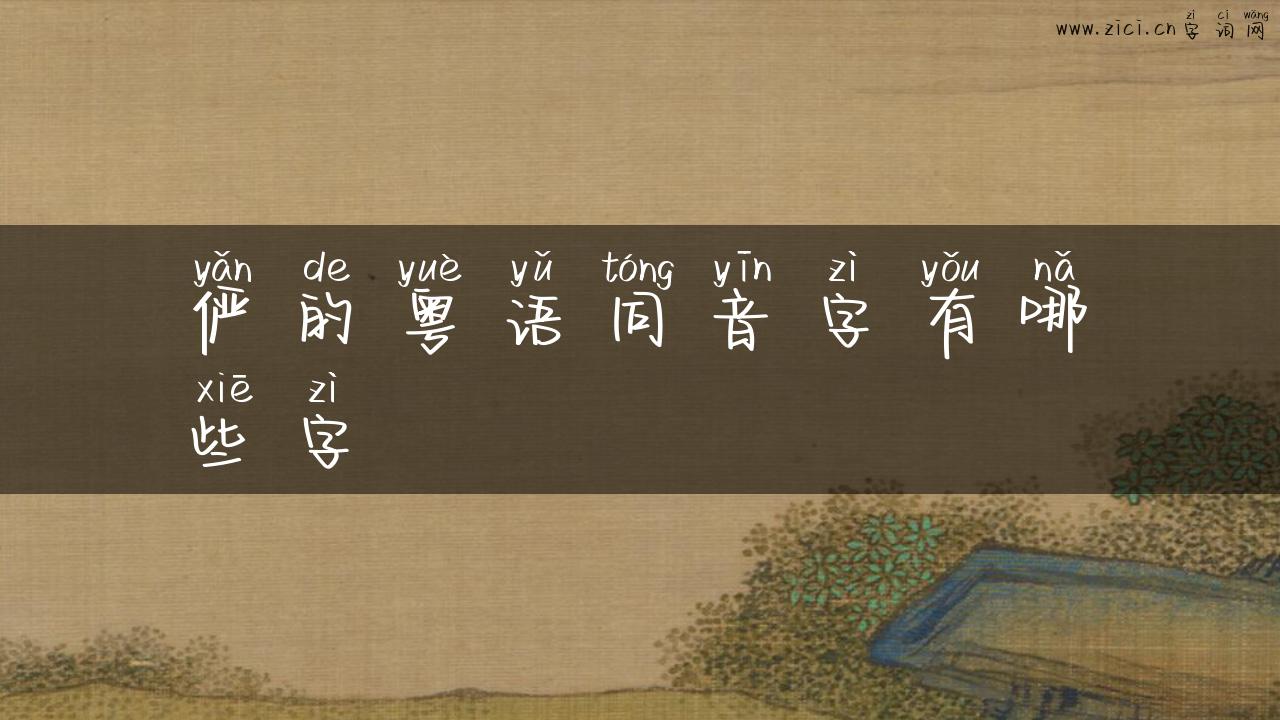 zì cí wǎng
www.zici.cn字词网
yǎn de yuè yǔ tóng yīn zì yǒu nǎ
俨的粤语同音字有哪
xiē zì
些字